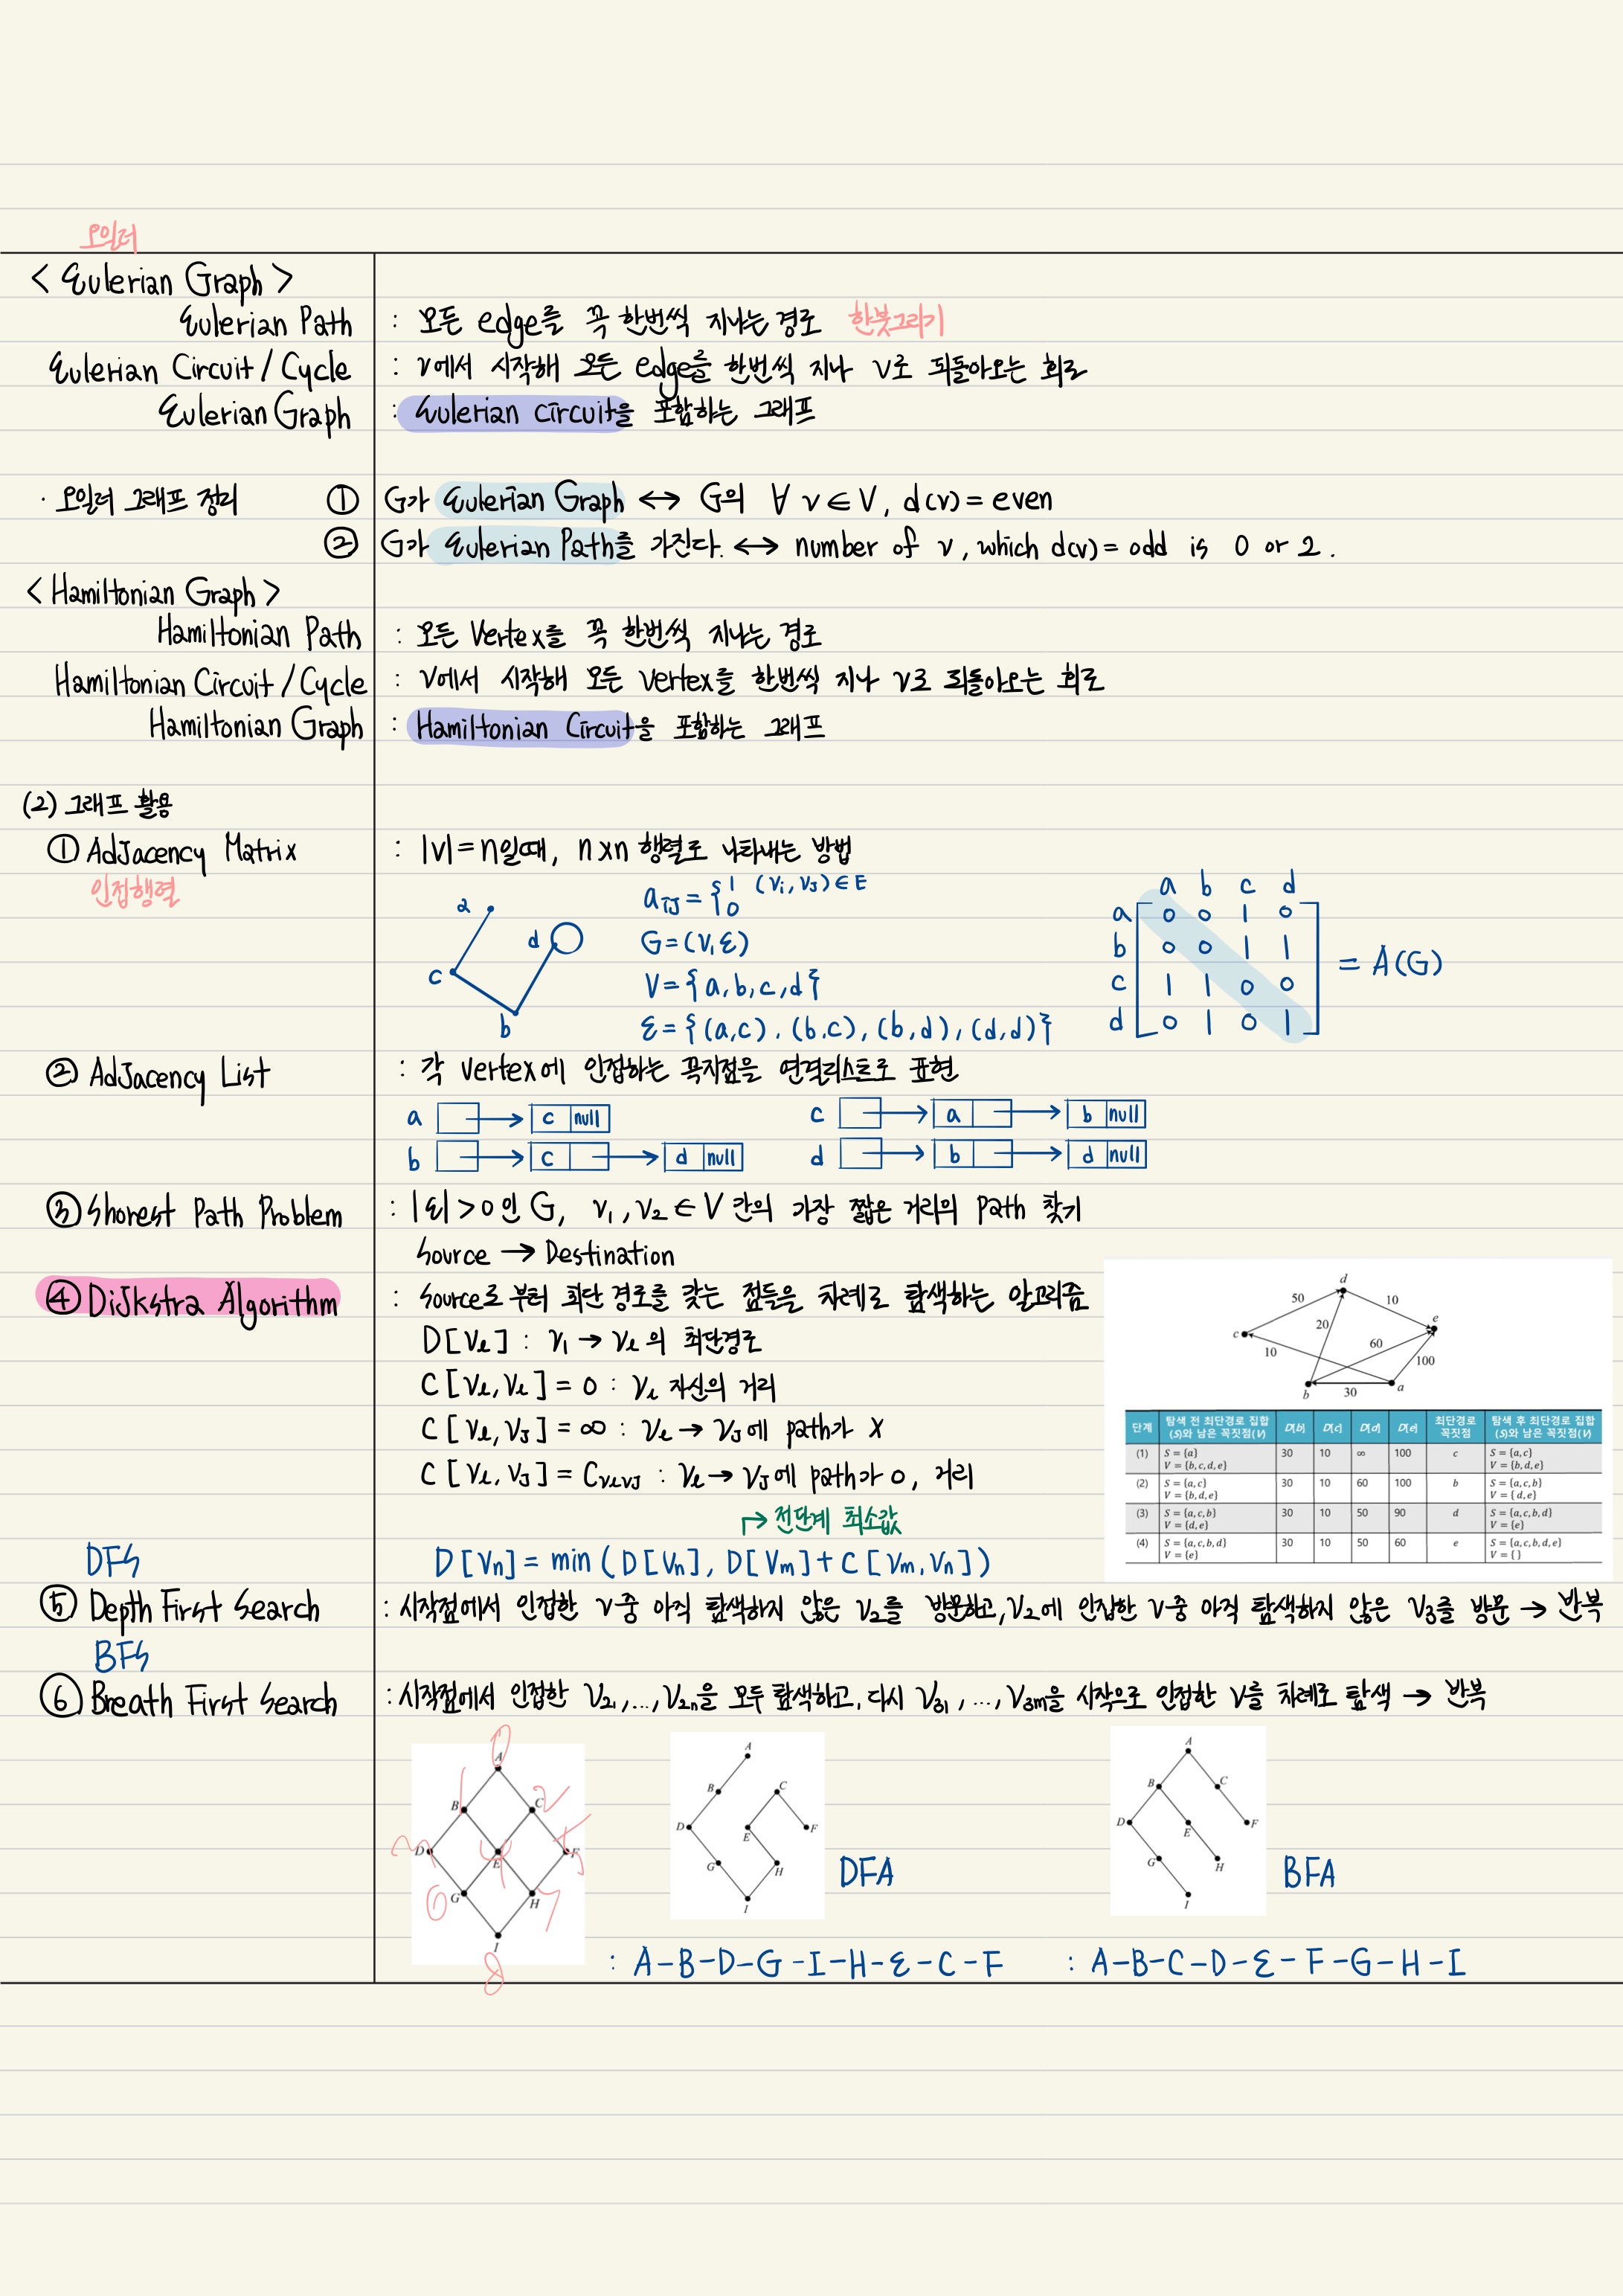 오일러
< Eulerian Graph >
Eulerian Path : 모든 edge를 꼭 한번씩 지나는 경로 한붓그리기
Eulerian Circuit / Cycle : v에서 시작해 모든 edge를 한번씩 지나 v로 되돌아오는 회로
Eulerian Graph : Eulerian circuit을 포함하는 그래프
· 오일러 그래프 정리 ① G가 Eulerian Graph ↔ G의 ∀ v ∈ V, d(v) = even
② G가 Eulerian Path를 가진다. ↔ number of v, which d(v) = odd is 0 or 2.
< Hamiltonian Graph >
Hamiltonian Path : 모든 Vertex를 꼭 한번씩 지나는 경로
Hamiltonian Circuit / Cycle : v에서 시작해 모든 vertex를 한번씩 지나 v로 되돌아오는 회로
Hamiltonian Graph : Hamiltonian Circuit을 포함하는 그래프
(2) 그래프 활용
① Adjacency Matrix : |v| = n일때, n×n 행렬로 나타내는 방법
인접행렬
a c b d
aij = { 1 (vi, vj) ∈ E
0
G = (V, E)
V = { a, b, c, d }
E = { (a,c), (b,c), (b,d), (d,d) }
a b c d
a 0 0 1 0
b 0 0 1 1
c 1 1 0 0
d 0 1 0 1
= A(G)
② Adjacency List : 각 vertex에 인접하는 꼭지점을 연결리스트로 표현
a → c null
c → a → b null
b → c → d null
d → b → d null
③ Shorest Path Problem : |E| > 0 인 G, v1, v2 ∈ V 간의 가장 짧은 거리의 path 찾기
Source → Destination
④ Dijkstra Algorithm : Source로 부터 최단 경로를 찾는 점들을 차례로 탐색하는 알고리즘
D[vi] : v1 → vi 의 최단경로
C[vi, vi] = 0 : vi 자신의 거리
C[vi, vj] = ∞ : vi → vj에 path가 X
C[vi, vj] = Cvivj : vi → vj에 path가 O, 거리
→ 전단계 최소값
D[vn] = min ( D[vn], D[vm] + C[vm, vn] )
d
50 10
c 20 e
10 60 100
b 30 a
단계 탐색 전 최단경로 집합(S)와 남은 꼭짓점(V) D[b] D[c] D[d] D[e] 최단경로 꼭짓점 탐색 후 최단경로 집합(S)와 남은 꼭짓점(V)
(1) S = {a} V = {b,c,d,e} 30 10 ∞ 100 c S = {a,c} V = {b,d,e}
(2) S = {a,c} V = {b,d,e} 30 10 60 100 b S = {a,c,b} V = { d,e}
(3) S = {a,c,b} V = {d,e} 30 10 50 90 d S = {a,c,b,d} V = {e}
(4) S = {a,c,b,d} V = {e} 30 10 50 60 e S = {a,c,b,d,e} V = { }
DFS
⑤ Depth First Search : 시작점에서 인접한 v중 아직 탐색하지 않은 v2를 방문하고, v2에 인접한 v중 아직 탐색하지 않은 v3를 방문 → 반복
BFS
⑥ Breath First Search : 시작점에서 인접한 v21, ..., v2n을 모두 탐색하고, 다시 v31, ..., v3m을 시작으로 인접한 v를 차례로 탐색 → 반복
A B C D E F G H I
0 1 2 3 4 5 6 7 8
A B C D E F G H I
DFA
A B C D E F G H I
BFA
: A-B-D-G-I-H-E-C-F
: A-B-C-D-E-F-G-H-I